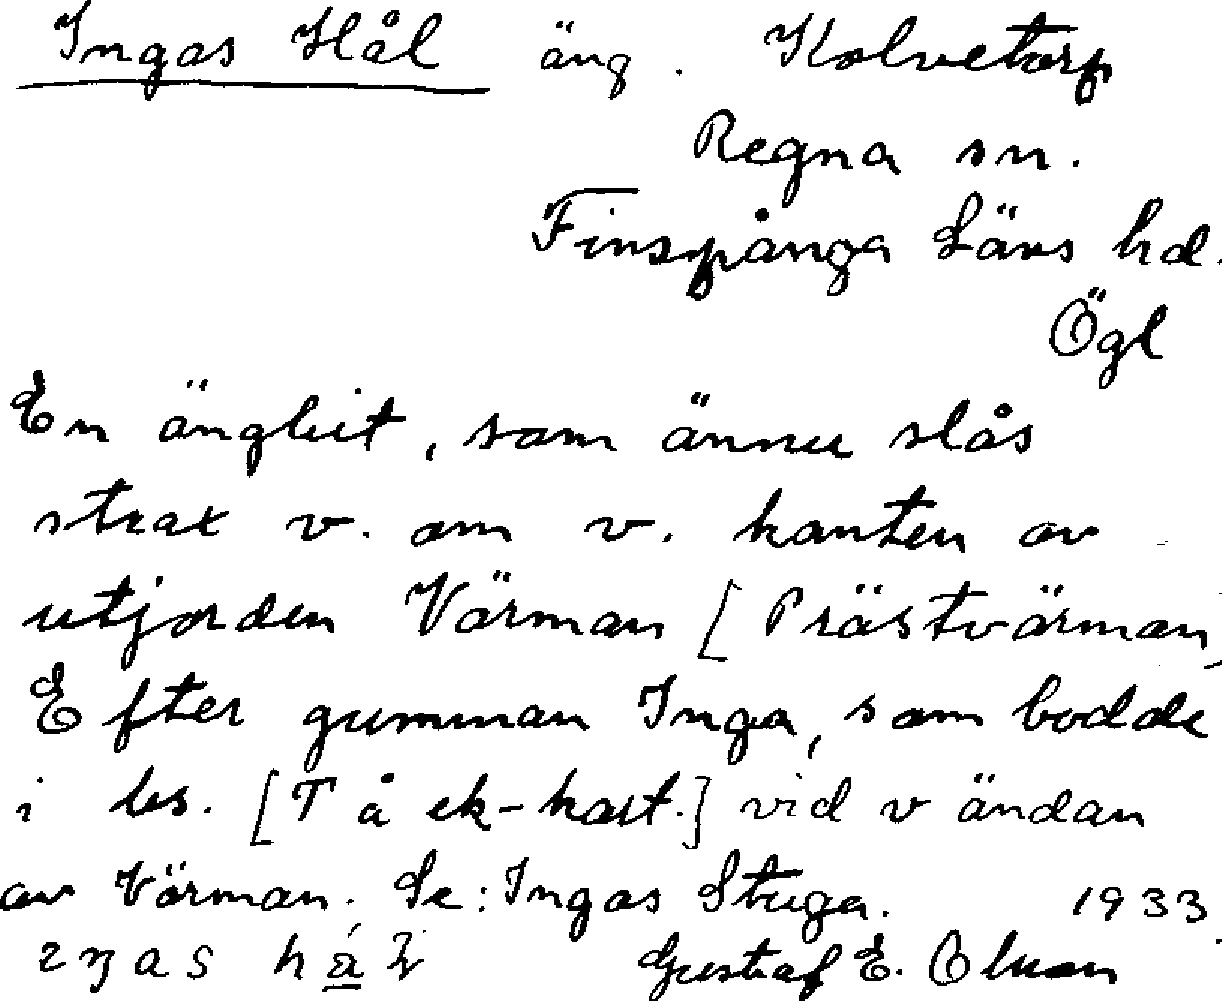 Ingas Hål äng. Kolvetorp
Regna sn.
Finspånga Läns hd.
Ögl
En ängbit, som ännu slås
strax v. om v. kanten av
utjorden Värman [Prästvärman]
Efter gumman Inga, som bodde
i bs. [T å ek-kart.] vid v ändan
av Värman. Se: Ingas Stuga. 1933.
Gustaf E. Olson